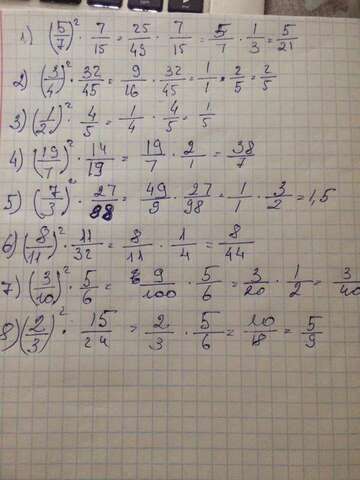 1) (5/7)² · 7/15 = 25/43 · 7/15 = 5/7 · 1/3 = 5/21
2) (3/4)² · 32/45 = 9/16 · 32/45 = 1/1 · 2/5 = 2/5
3) (1/2)² · 4/5 = 1/4 · 4/5 = 1/5
4) (19/7)² · 14/19 = 19/7 · 2/1 = 38/7
5) (7/3)² · 27/98 = 49/9 · 27/98 = 1/1 · 3/2 = 1,5
6) (8/11)² · 11/32 = 8/11 · 1/4 = 8/44
7) (3/10)² · 5/6 = 9/100 · 5/6 = 3/20 · 1/2 = 3/40
8) (2/3)² · 15/24 = 2/3 · 5/6 = 10/18 = 5/9